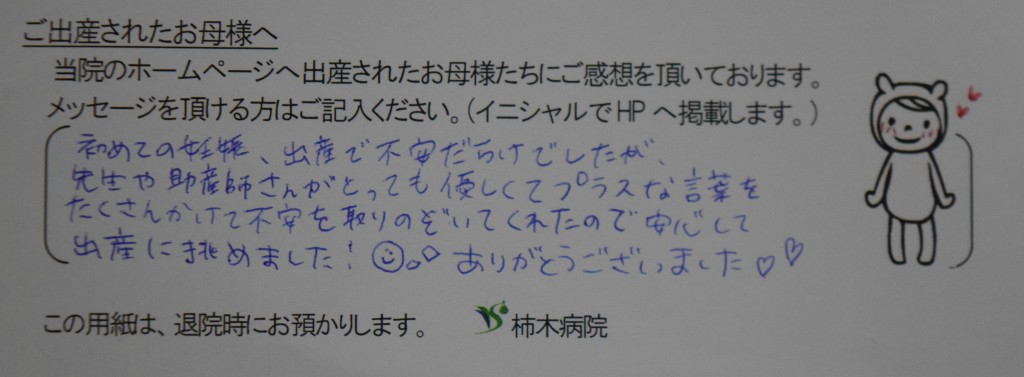 ご出産されたお母様へ
当院のホームページへ出産されたお母様たちにご感想を頂いております。
メッセージを頂ける方はご記入ください。(イニシャルでHPへ掲載します。)
初めての妊娠、出産で不安だらけでしたが、
先生や助産師さんがとっても優しくてプラスな言葉を
たくさんかけて不安を取りのぞいてくれたので安心して
出産に挑めました! ありがとうございました♡♡
この用紙は、退院時にお預かりします。 柿木病院